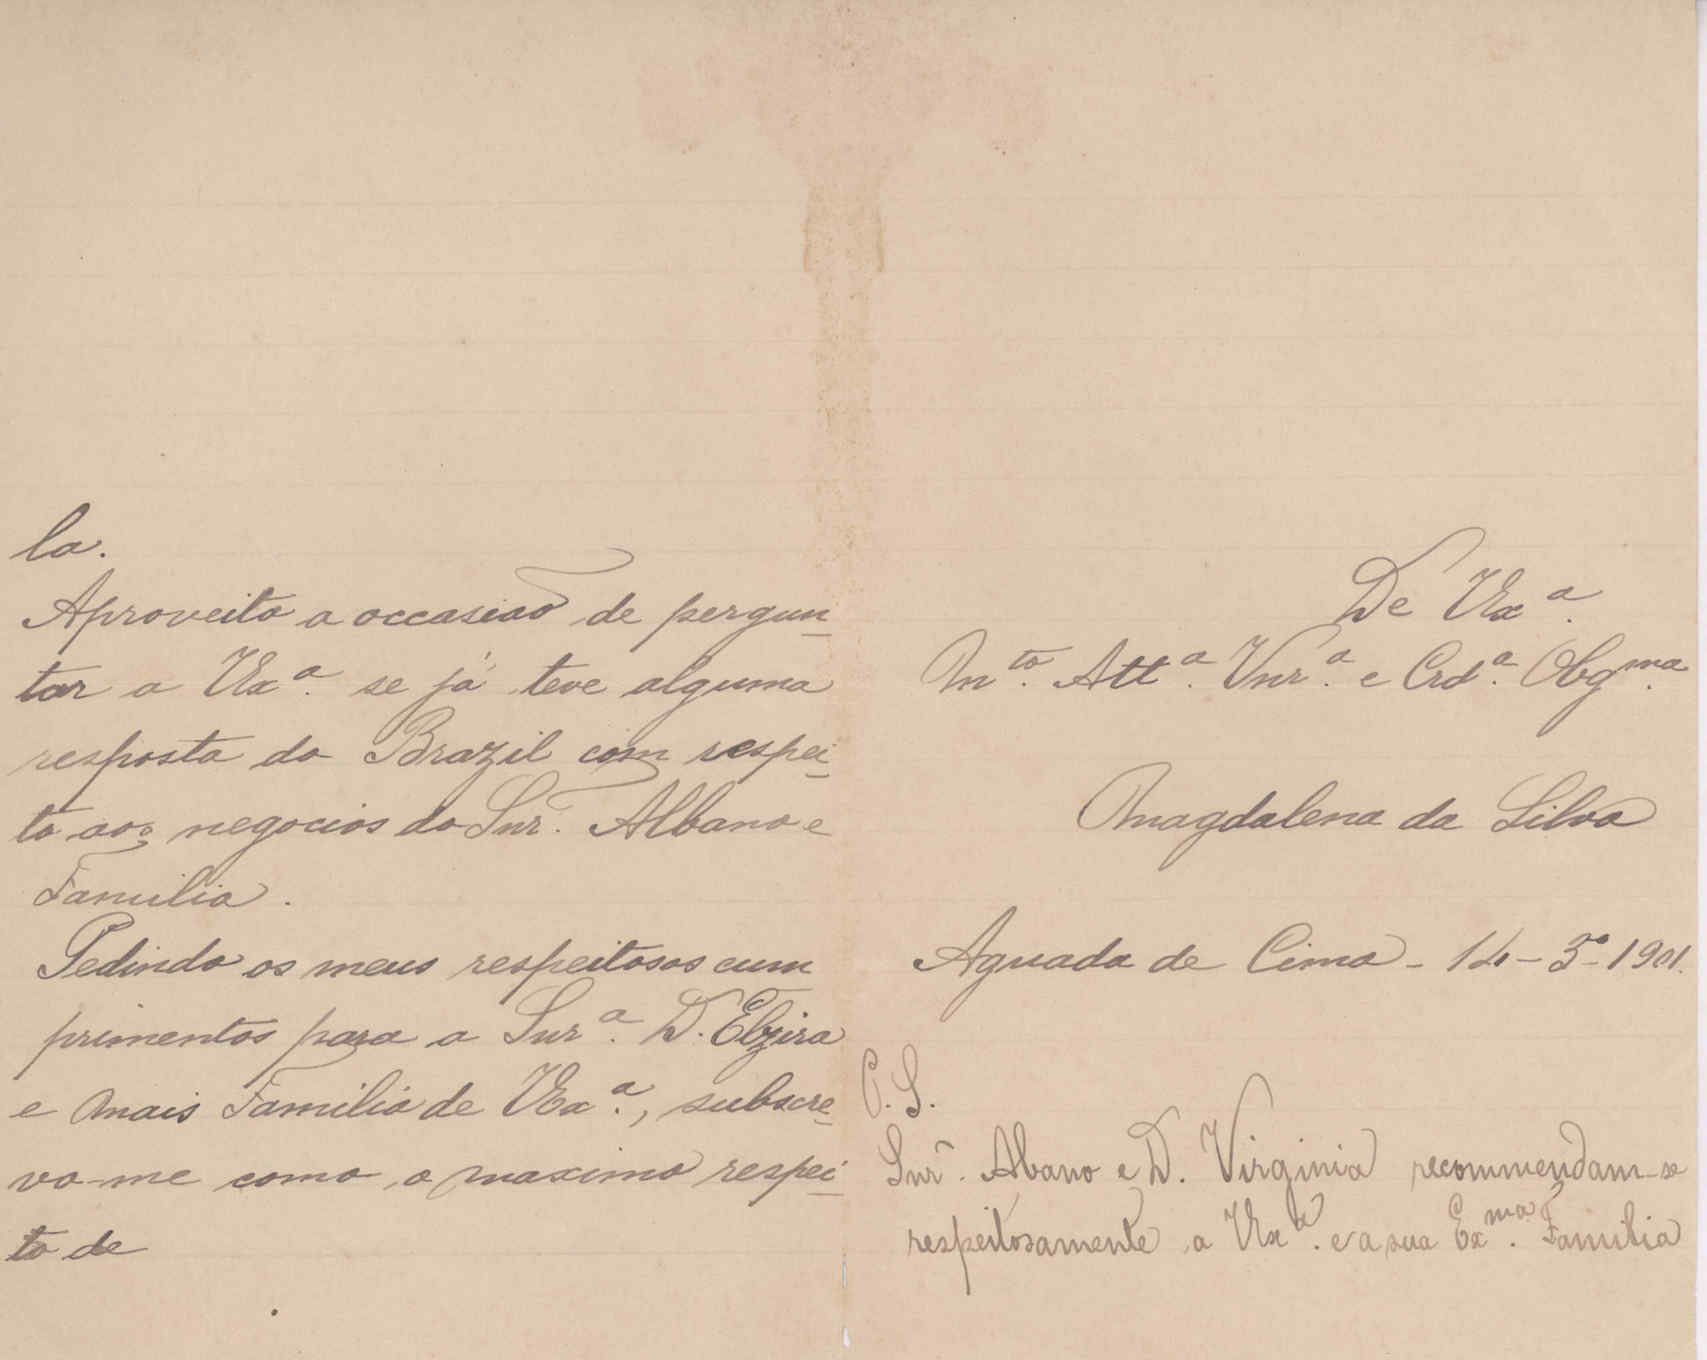 la.
Aproveito a occasião de pergun-
tar a VExª. se já teve alguma
resposta do Brazil com respei-
to aos negocios do Snr. Albano e
Familia.
Pedindo os meus respeitosos cum
primentos para a Snrª. D. Elzira
e mais Familia de VExª., subscre-
vo-me como o maximo respei-
to de
De VExª.
Mto. Attª. Vnrª. e Crdª. Obgma.
Magdalena da Silva
Aguada de Cima - 14 - 3º - 1901.
P. S.
Snr. Abano e D. Virginia recommendam-se
respeitosamente a VExª. e a sua Exma. Familia